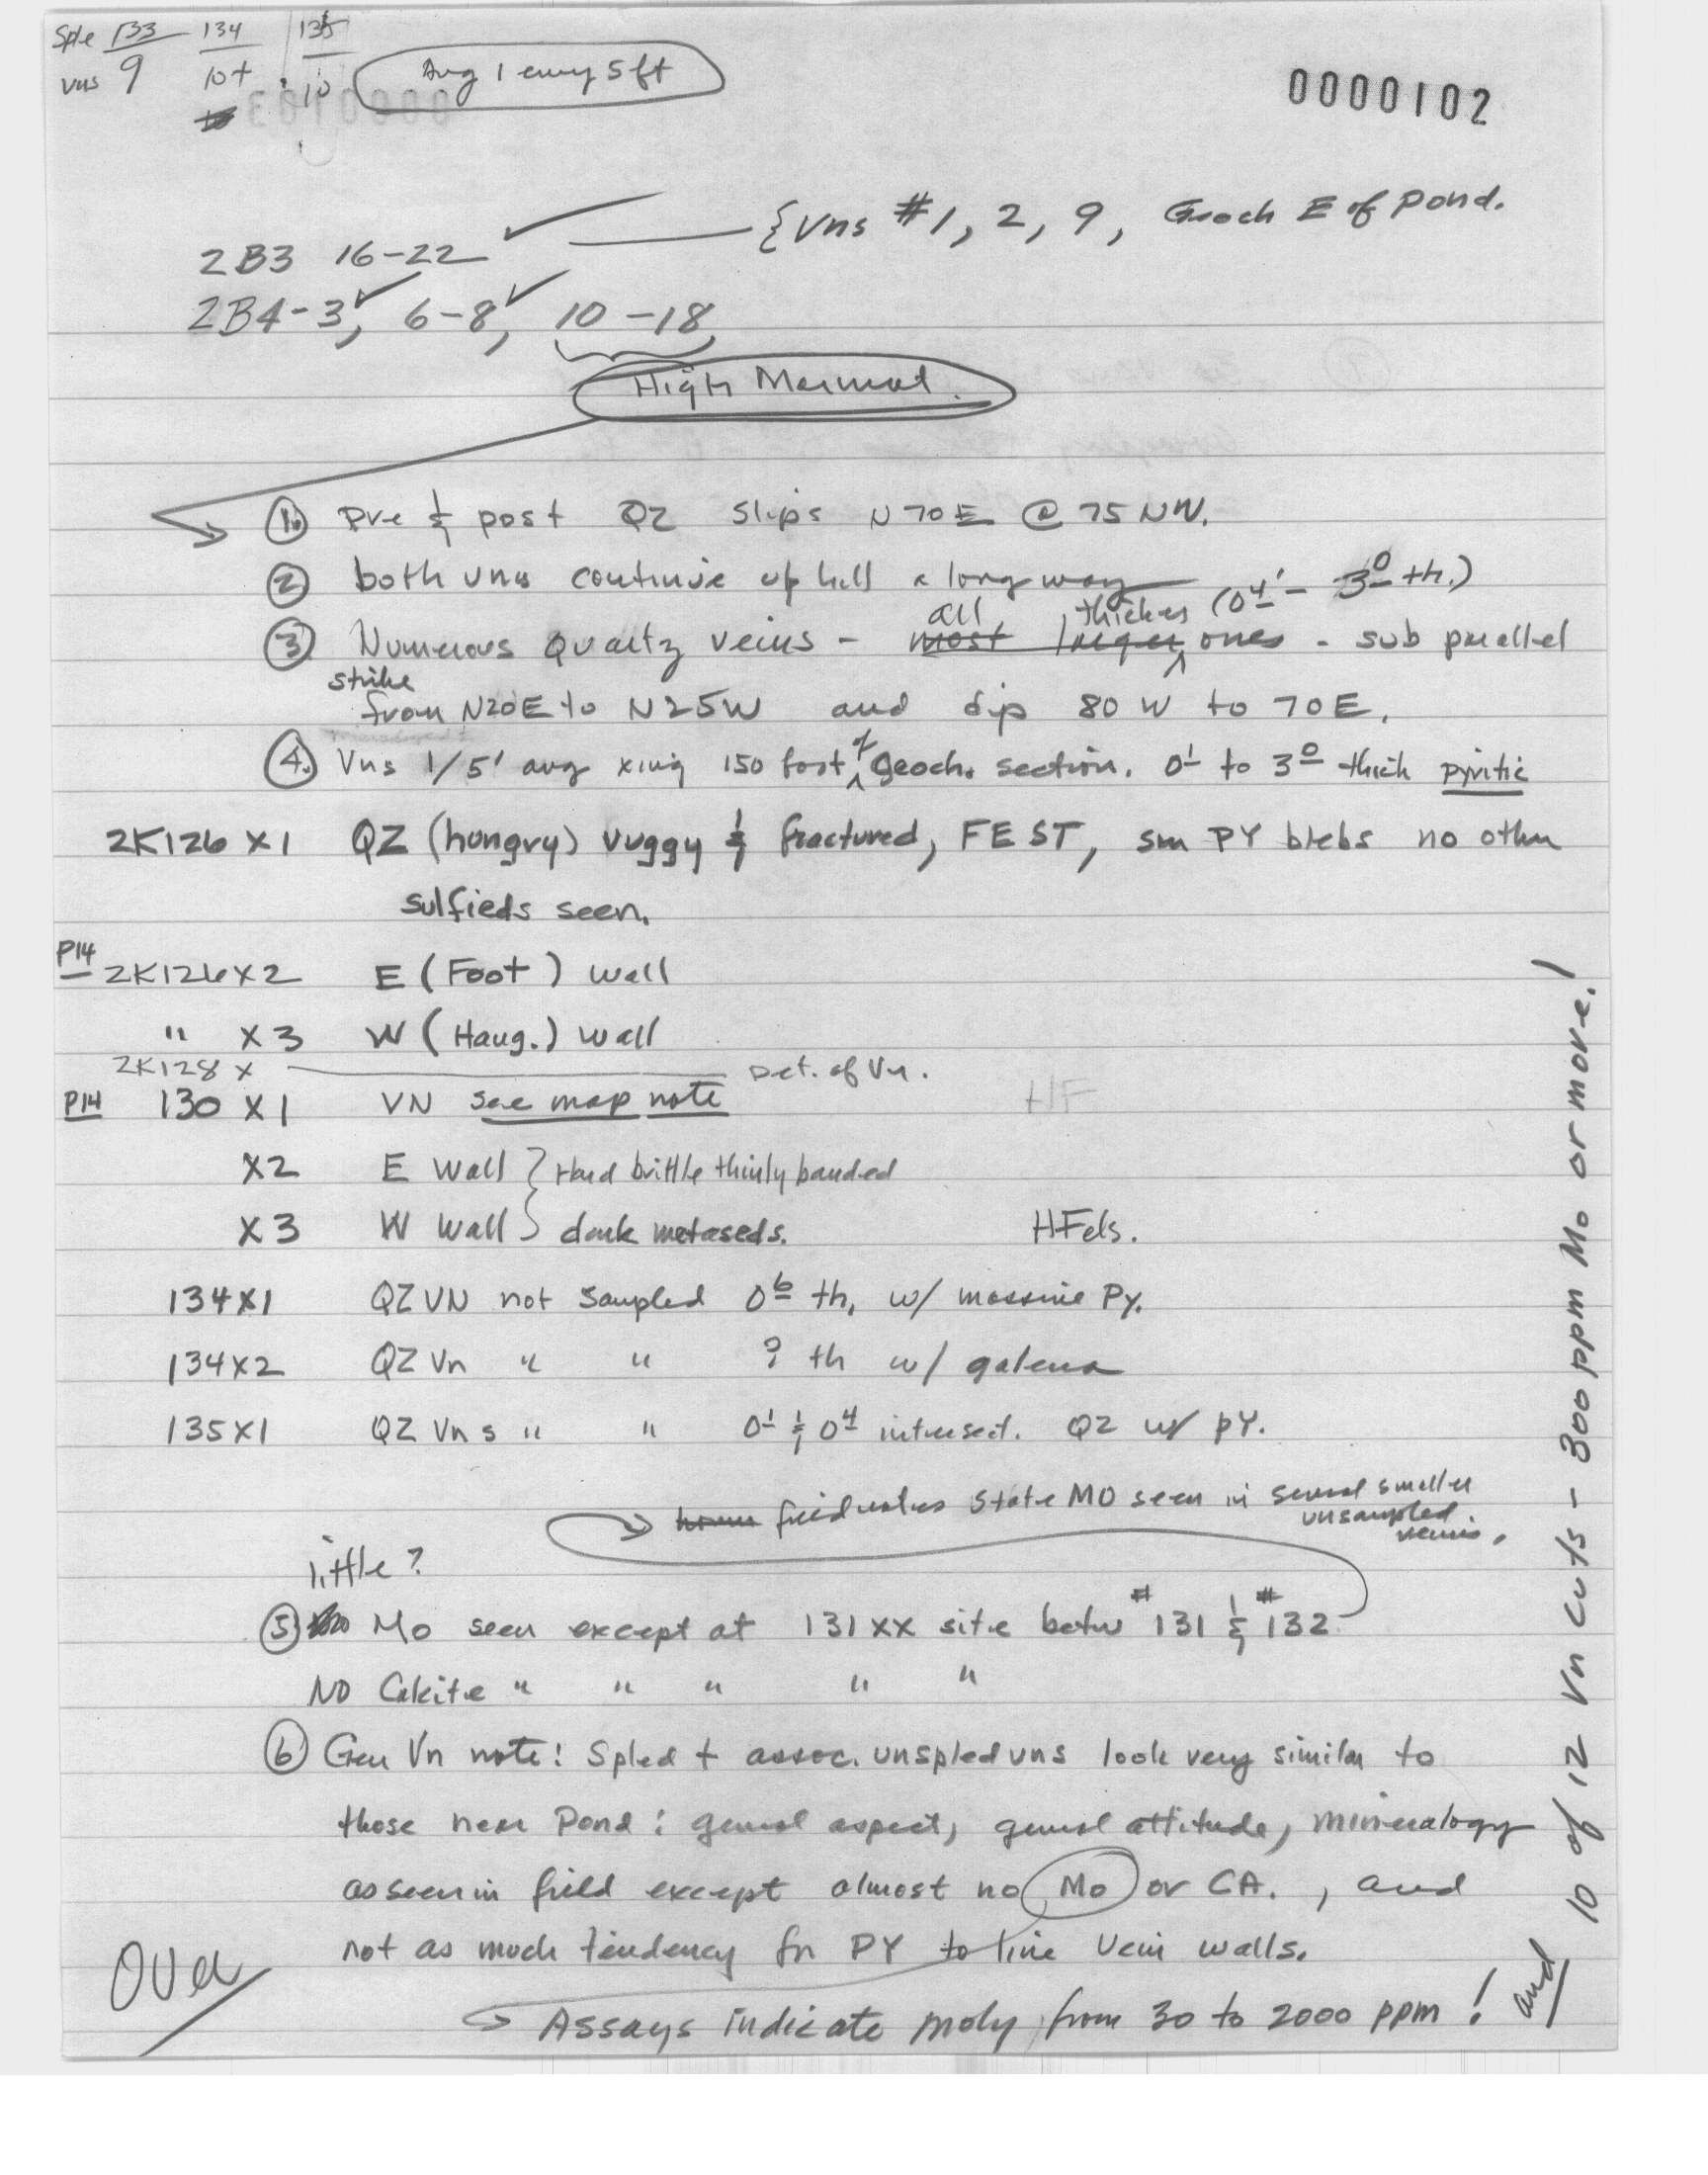 Sple 133 134 135
vns 9 10+ 10 Avg 1 every 5 ft
0000102
{Vns #1, 2, 9, Geoch E of Pond.
2B3 16-22 ✓
2B4-3✓, 6-8✓, 10-18
High
① Pre & post QZ slips N70E @ 75 NW.
② both vns continue up hill a long way
all thicker (0 4' - 3 0 th.)
③ Numerous Quartz veins - most larger ones - sub parallel
strike
from N20E to N25W and dip 80 W to 70E.
④ Vns 1/5' avg xing 150 foot of Geoch. section. 0 1 to 3 0 thick pyritic
2K126 X1 QZ (hongry) vuggy & fractured, FEST, sm PY blebs no other
sulfieds seen.
P14 2K126X2 E (Foot) wall
" X3 W (Hang.) wall
2K128 X Det. of Vn.
P14 130 X1 VN see map note HF
X2 E Wall } Hard brittle thinly banded
X3 W Wall } dark metaseds. HFels.
134X1 QZ VN not sampled 0 6 th, w/ massive Py.
134X2 QZ Vn " " ? th w/ galena
135X1 QZ Vns " " 0 1 & 0 4 intersect. QZ w/ PY.
field notes state MO seen in several smaller
unsampled
veins.
little?
⑤ Mo seen except at 131 XX site betw #131 & #132
NO Calcite " " " " "
⑥ Gen Vn note! Spled + assoc. unspled vns look very similar to
those near Pond: general aspect, general attitude, mineralogy
as seen in field except almost no Mo or CA. , and
not as much tendency for PY to line vein walls.
Over
Assays indicate moly from 30 to 2000 ppm!
and 10 of 12 Vn cuts - 300 ppm Mo or more!